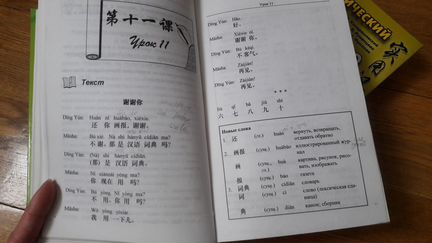 第十一课
Урок 11
Текст
谢谢你
Dīng Yún: Huán nǐ huàbào, xièxie.
还 你 画报，谢谢。
Mǎshā: Bú xiè. Nà shì hànyǔ cídiǎn ma?
不 谢。那 是 汉语 词典 吗？
Dīng Yún: (Nà) shì hànyǔ cídiǎn.
(那) 是 汉语 词典。
Mǎshā: Nǐ xiànzài yòng ma?
你 现在 用 吗？
Dīng Yún: Bú yòng. Nǐ yòng ma?
不 用。你 用 吗？
Mǎshā: Wǒ yòng yíxiàr.
我 用 一下儿。
Урок 11
Dīng Yún: Hǎo.
好。
Mǎshā: Xièxie nǐ.
谢谢 你。
Dīng Yún: Bú kèqi.
不 客气。
Mǎshā: Zàijiàn!
再见。
Dīng Yún: Zàijiàn!
再见。
* * *
liù qī bā jiǔ shí
六 七 八 九 十
Новые слова
1. 还 (гл.) huán вернуть, возвращать, отдавать обратно
2. 画报 (сущ.) huàbào иллюстрированный журнал
画 (сущ., гл.) huà картина, рисунок, рисовать, изображать
报 (сущ.) bào газета
3. 词典 (сущ.) cídiǎn словарь
词 (сущ.) cí слово (лексическая единица)
典 (сущ.) diǎn канон; сборник
ПРАКТИЧЕСКИЙ
实用